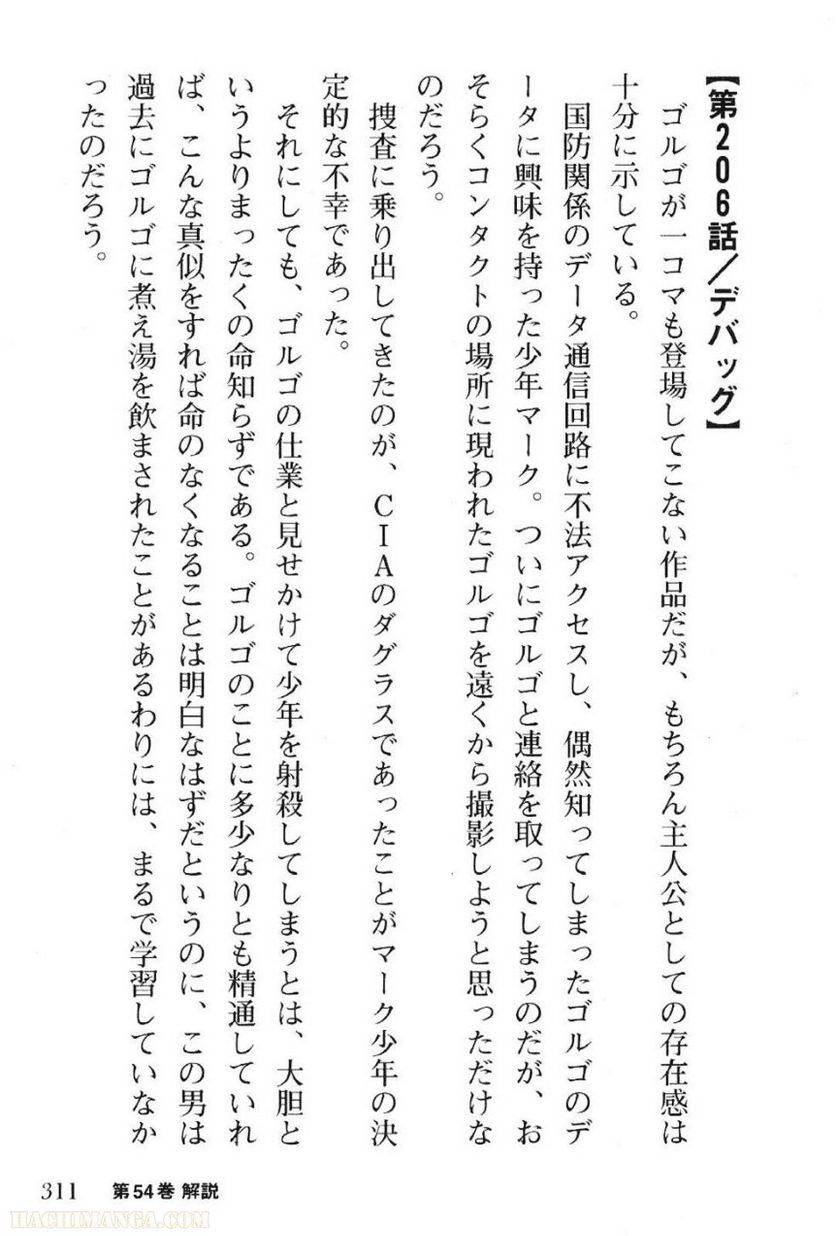 【第206話／デバッグ】
ゴルゴが一コマも登場してこない作品だが、もちろん主人公としての存在感は
十分に示している。
国防関係のデータ通信回路に不法アクセスし、偶然知ってしまったゴルゴのデ
ータに興味を持った少年マーク。ついにゴルゴと連絡を取ってしまうのだが、お
そらくコンタクトの場所に現われたゴルゴを遠くから撮影しようと思っただけな
のだろう。
捜査に乗り出してきたのが、CIAのダグラスであったことがマーク少年の決
定的な不幸であった。
それにしても、ゴルゴの仕業と見せかけて少年を射殺してしまうとは、大胆と
いうよりまったくの命知らずである。ゴルゴのことに多少なりとも精通していれ
ば、こんな真似をすれば命のなくなることは明白なはずだというのに、この男は
過去にゴルゴに煮え湯を飲まされたことがあるわりには、まるで学習していなか
ったのだろう。
311 第54巻 解説
HACHIMANGA.COM